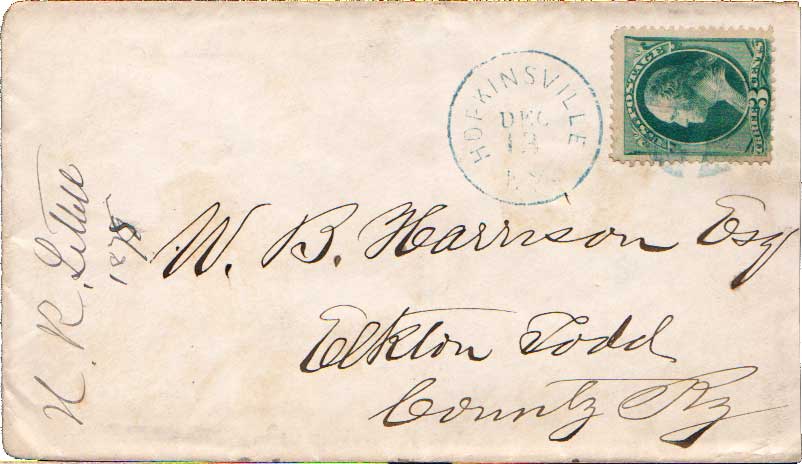 HOPKINSVILLE
DEC
13
KY.
U.S. POSTAGE
3
CENTS
W. B. Harrison Esq
Elkton Todd
County Ky
H. R. Littell